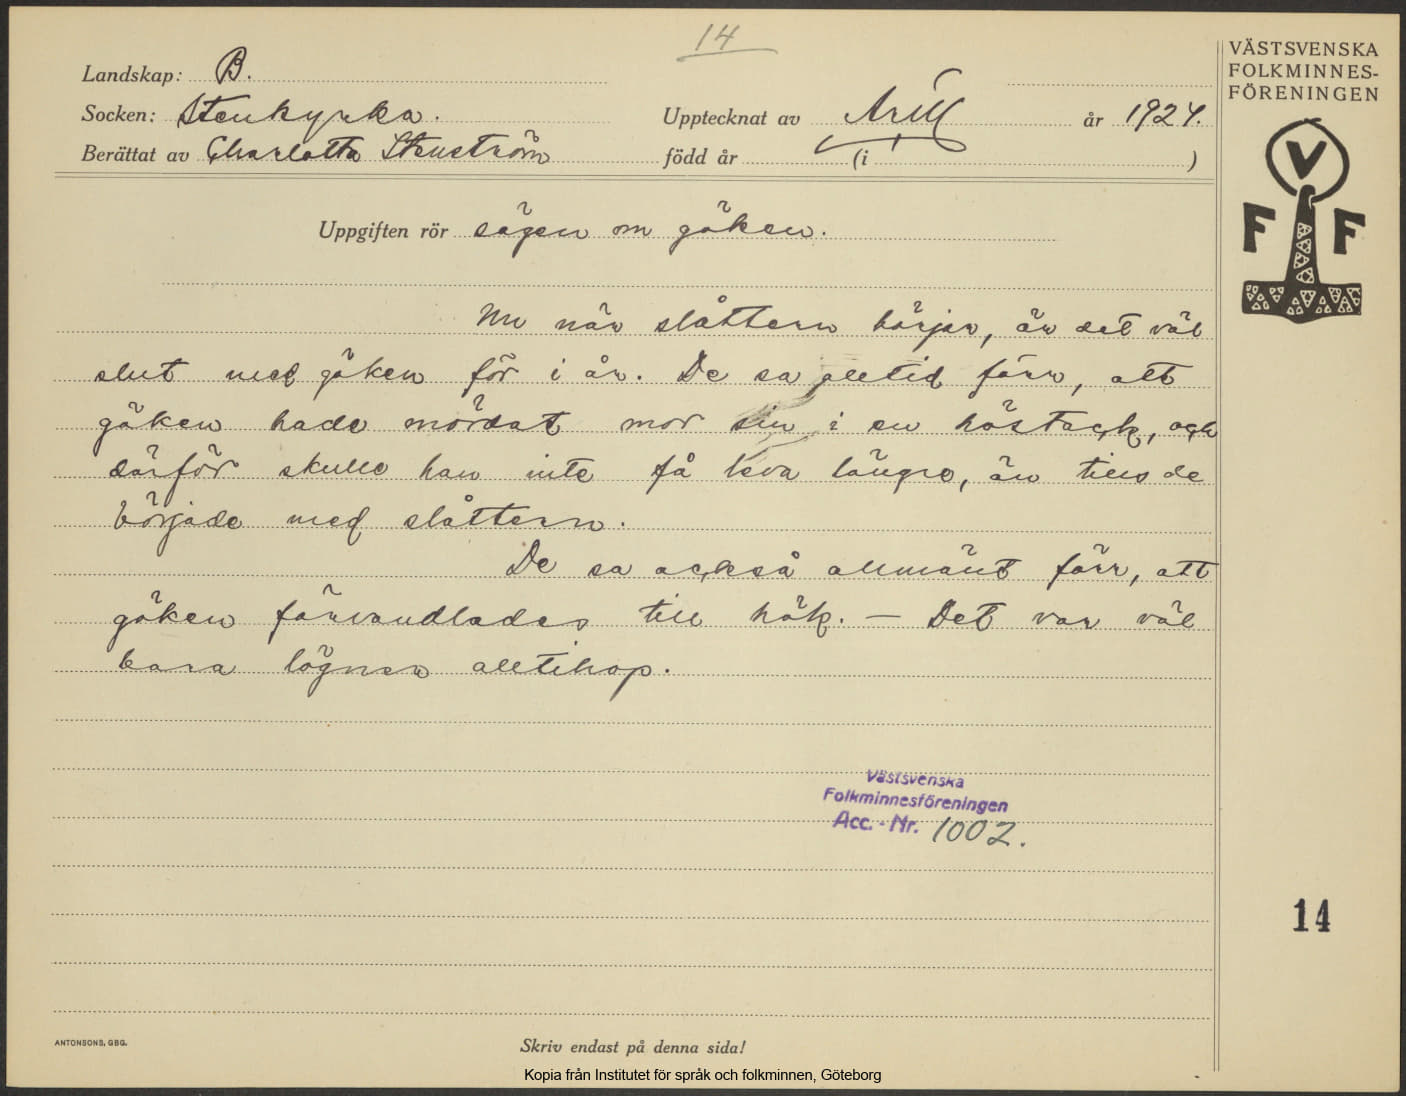 14
Landskap: B.
Socken: Stenkyrka.
Upptecknat av Arill år 1924.
Berättat av Charlotta Stenström född år (i )
VÄSTSVENSKA
FOLKMINNES-
FÖRENINGEN
V
F F
Uppgiften rör sägen om göken.
Nu när slåttern börjar, är det väl
slut med göken för i år. De sa alltid förr, att
göken hade mördat mor sin i en höstack, och
därför skulle han inte få leva längre, än tills de
började med slåttern.
De sa också allmänt förr, att
göken förvandlades till hök. — Det var väl
bara lögner alltihop.
Västsvenska
Folkminnesföreningen
Acc. - Nr. 1002.
14
ANTONSONS, GBG.
Skriv endast på denna sida!
Kopia från Institutet för språk och folkminnen, Göteborg